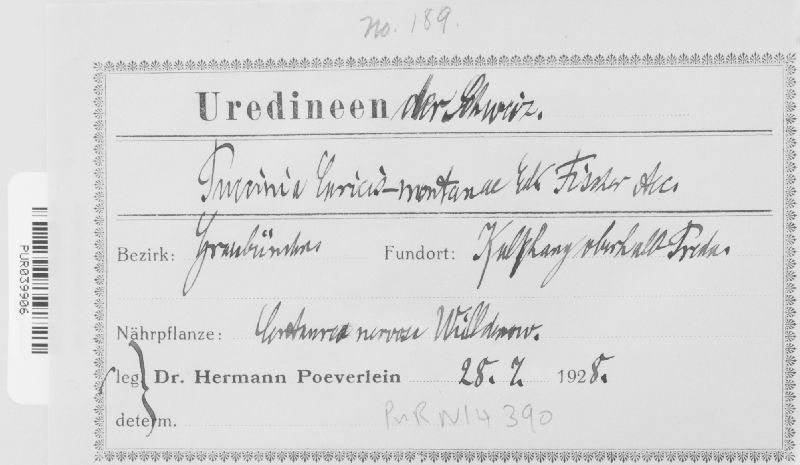 No. 189.
Uredineen der Schweiz.
Puccinia Caricis-montanae Ed. Fischer Aec.
Bezirk: Graubünden. Fundort: Kalkhang oberhalb Preda.
Nährpflanze: Centaurea nervosa Willdenow.
leg. Dr. Hermann Poeverlein 28. 7. 1928.
determ.
PUR N14390
PUR039906